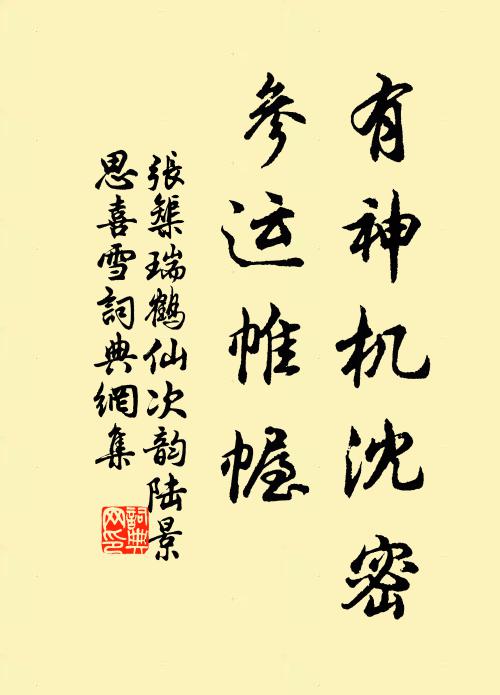 有神机沈密
参运帷幄
張榘瑞鶴仙次韵陆景
思喜雪詞典網集
詞典
网印